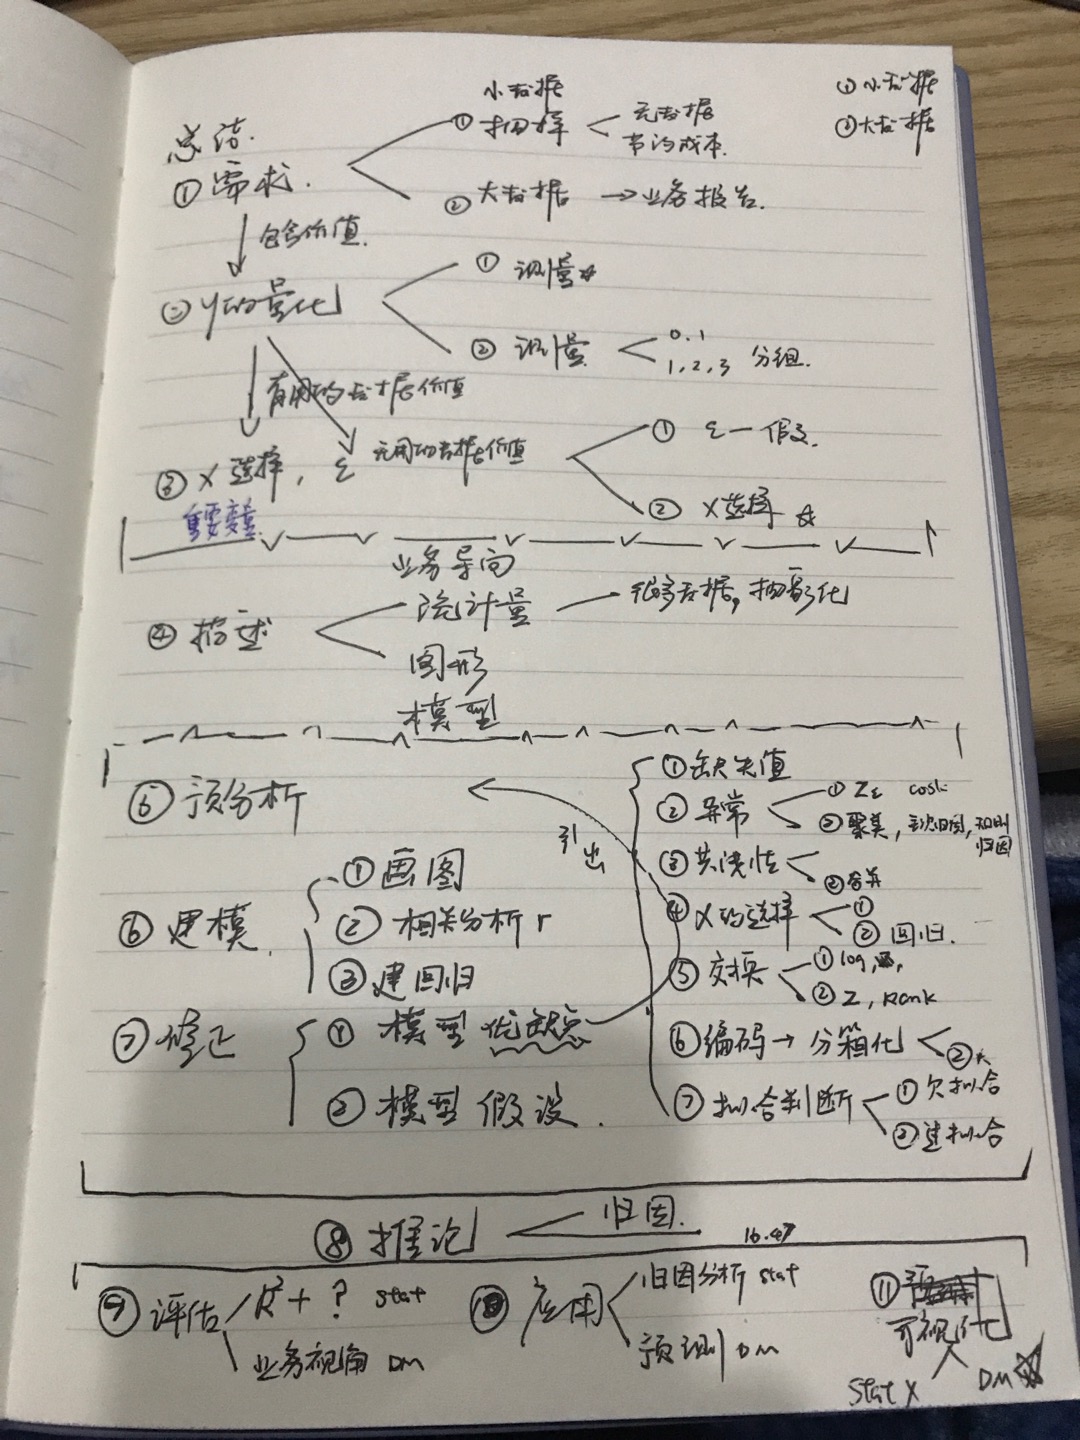 小数据
① 小数据
总结.
① 抽样
无数据
节约成本.
② 大数据
① 需求.
② 大数据 → 业务报告.
包含价值.
① 测量
② Y的量化
② 测量
0.1
1, 2, 3 分组.
有用的数据价值
① ε — 假设.
③ X选择, ε 无用的数据价值
② X选择 ☆
重要变量
业务导向
④ 描述
统计量
很多数据, 抽象化
图形
模型
⑤ 预分析
引出
① 缺失值
② 异常
① Zε cook
② 聚类,
归因
③ 共线性
② 合并
④ X的选择
①
② 回归.
⑤ 变换
① log,
② Z, Rank
⑥ 编码 → 分箱化
②
⑦ 拟合判断
① 欠拟合
② 过拟合
⑥ 建模.
① 画图
② 相关分析 r
③ 建回归
⑦ 修正
① 模型优缺点
② 模型假设.
⑧ 推论
归因.
16.47
⑨ 评估
R² + ? stat
业务视角 DM
⑩ 应用
归因分析 stat
预测 DM
⑪
可视化
stat X
DM ☆